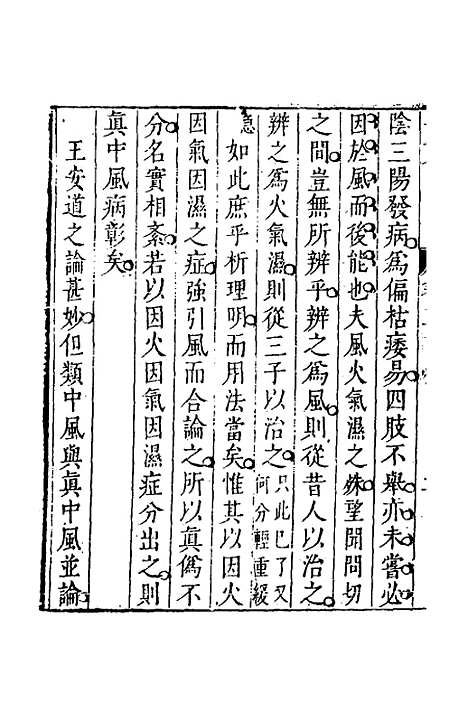 陰三陽發病爲偏枯痿易四肢不舉亦未嘗必
因於風而後能也夫風火氣濕之殊望聞問切
之間豈無所辨乎辨之爲風則從昔人以治之
辨之爲火氣濕則從三子以治之只此已了又何分輕重緩
急
如此庶乎析理明而用法當矣惟其以因火
因氣因濕之症強引風而合論之所以眞僞不
分名實相紊若以因火因氣因濕症分出之則
眞中風病彰矣
王安道之論甚妙但類中風與眞中風並論